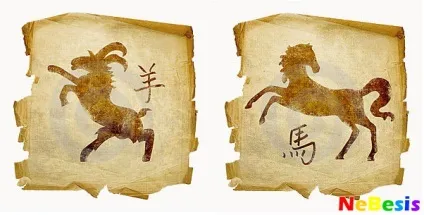 羊
馬
NeBesis